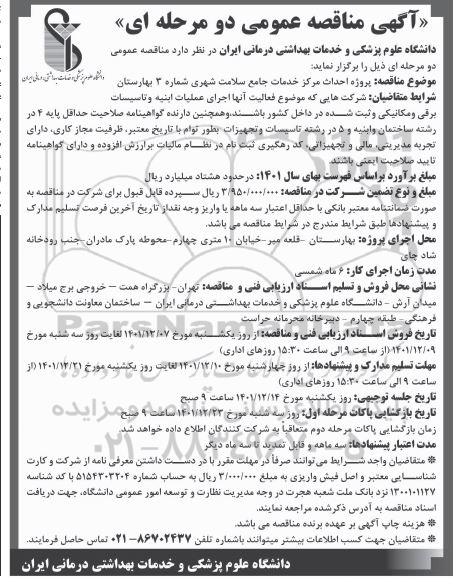 «آگهی مناقصه عمومی دو مرحله ای»
دانشگاه علوم پزشکی و خدمات بهداشتی درمانی ایران
دانشگاه علوم پزشکی و خدمات بهداشتی درمانی ایران در نظر دارد مناقصه عمومی
دو مرحله ای ذیل را برگزار نماید:
موضوع مناقصه: پروژه احداث مرکز خدمات جامع سلامت شهری شماره ۳ بهارستان
شرایط متقاضیان: شرکت هایی که موضوع فعالیت آنها اجرای عملیات ابنیه وتاسیسات
برقی ومکانیکی وثبت شده در داخل کشور باشند.وهمچنین دارنده گواهینامه صلاحیت حداقل پایه ۴ در
رشته ساختمان وابنیه و ۵ در رشته تاسیسات وتجهیزات بطور توام با تاریخ معتبر، ظرفیت مجاز کاری، دارای
تجربه مدیریتی، مالی و تجهیزاتی، کد رهگیری ثبت نام در نظام مالیات برارزش افزوده و دارای گواهینامه
تایید صلاحیت ایمنی باشند.
مبلغ برآورد براساس فهرست بهای سال ۱۴۰۱: درحدود هشتاد میلیارد ریال
مبلغ و نوع تضمین شرکت در مناقصه: ۳/۹۵۰/۰۰۰/۰۰۰ ریال سپرده قابل قبول برای شرکت در مناقصه به
صورت ضمانتنامه معتبر بانکی با حداقل اعتبار سه ماهه یا واریز وجه نقداز تاریخ آخرین فرصت تسلیم مدارک
و پیشنهادها طبق شرایط مندرج در شرایط مناقصه می باشد.
محل اجرای پروژه: بهارستان -قلعه میر-خیابان ۱۰ متری چهارم-محوطه پارک مادران-جنب رودخانه
شاد چای
مدت زمان اجرای کار: ۶ ماه شمسی
نشانی محل فروش و تسلیم اسناد ارزیابی فنی و مناقصه: تهران- بزرگراه همت – خروجی برج میلاد –
میدان آرش - دانشگاه علوم پزشکی و خدمات بهداشتی درمانی ایران – ساختمان معاونت دانشجویی و
فرهنگی- طبقه چهارم - دبیرخانه محرمانه حراست
تاریخ فروش اسناد ارزیابی فنی و مناقصه: از روز یکشنبه مورخ ۱۴۰۱/۱۲/۰۷ لغایت روز سه شنبه مورخ
۱۴۰۱/۱۲/۰۹ (از ساعت ۹ الی ساعت ۱۵:۳۰ روزهای اداری)
مهلت تسلیم مدارک و پیشنهادها: از روز چهارشنبه مورخ ۱۴۰۱/۱۲/۱۰ لغایت روز یکشنبه مورخ ۱۴۰۱/۱۲/۲۱ (از
ساعت ۹ الی ساعت ۱۵:۳۰ روزهای اداری)
تاریخ جلسه توجیهی: روز یکشنبه مورخ ۱۴۰۱/۱۲/۱۴ ساعت ۹ صبح
تاریخ بازگشایی پاکات مرحله اول: روز سه شنبه مورخ ۱۴۰۱/۱۲/۲۳ ساعت ۹ صبح
زمان بازگشایی پاکات مرحله دوم متعاقباً به شرکت کنندگان اطلاع داده خواهد شد.
مدت اعتبار پیشنهادها: سه ماهه و قابل تمدید تا سه ماه دیگر
※ متقاضیان واجد شرایط می توانند صرفاً در مهلت مقرر با در دست داشتن معرفی نامه از شرکت و کارت
شناسایی معتبر و اصل فیش واریزی به مبلغ ۳/۰۰۰/۰۰۰ ریال به حساب شماره ۵۱۵۴۳۰۳۲۰۴ با کد شناسه
۱۳۰۰۱۰۱۱۲۷ نزد بانک ملت شعبه هجرت در وجه مدیریت نظارت و توسعه امور عمومی دانشگاه، جهت دریافت
اسناد مناقصه به آدرس ذکرشده مراجعه نمایند.
※ هزینه چاپ آگهی بر عهده برنده مناقصه می باشد.
※ متقاضیان جهت کسب اطلاعات بیشتر میتوانند باشماره تلفن ۸۶۷۰۲۴۳۷-۰۲۱ تماس حاصل فرمایند.
دانشگاه علوم پزشکی و خدمات بهداشتی درمانی ایران